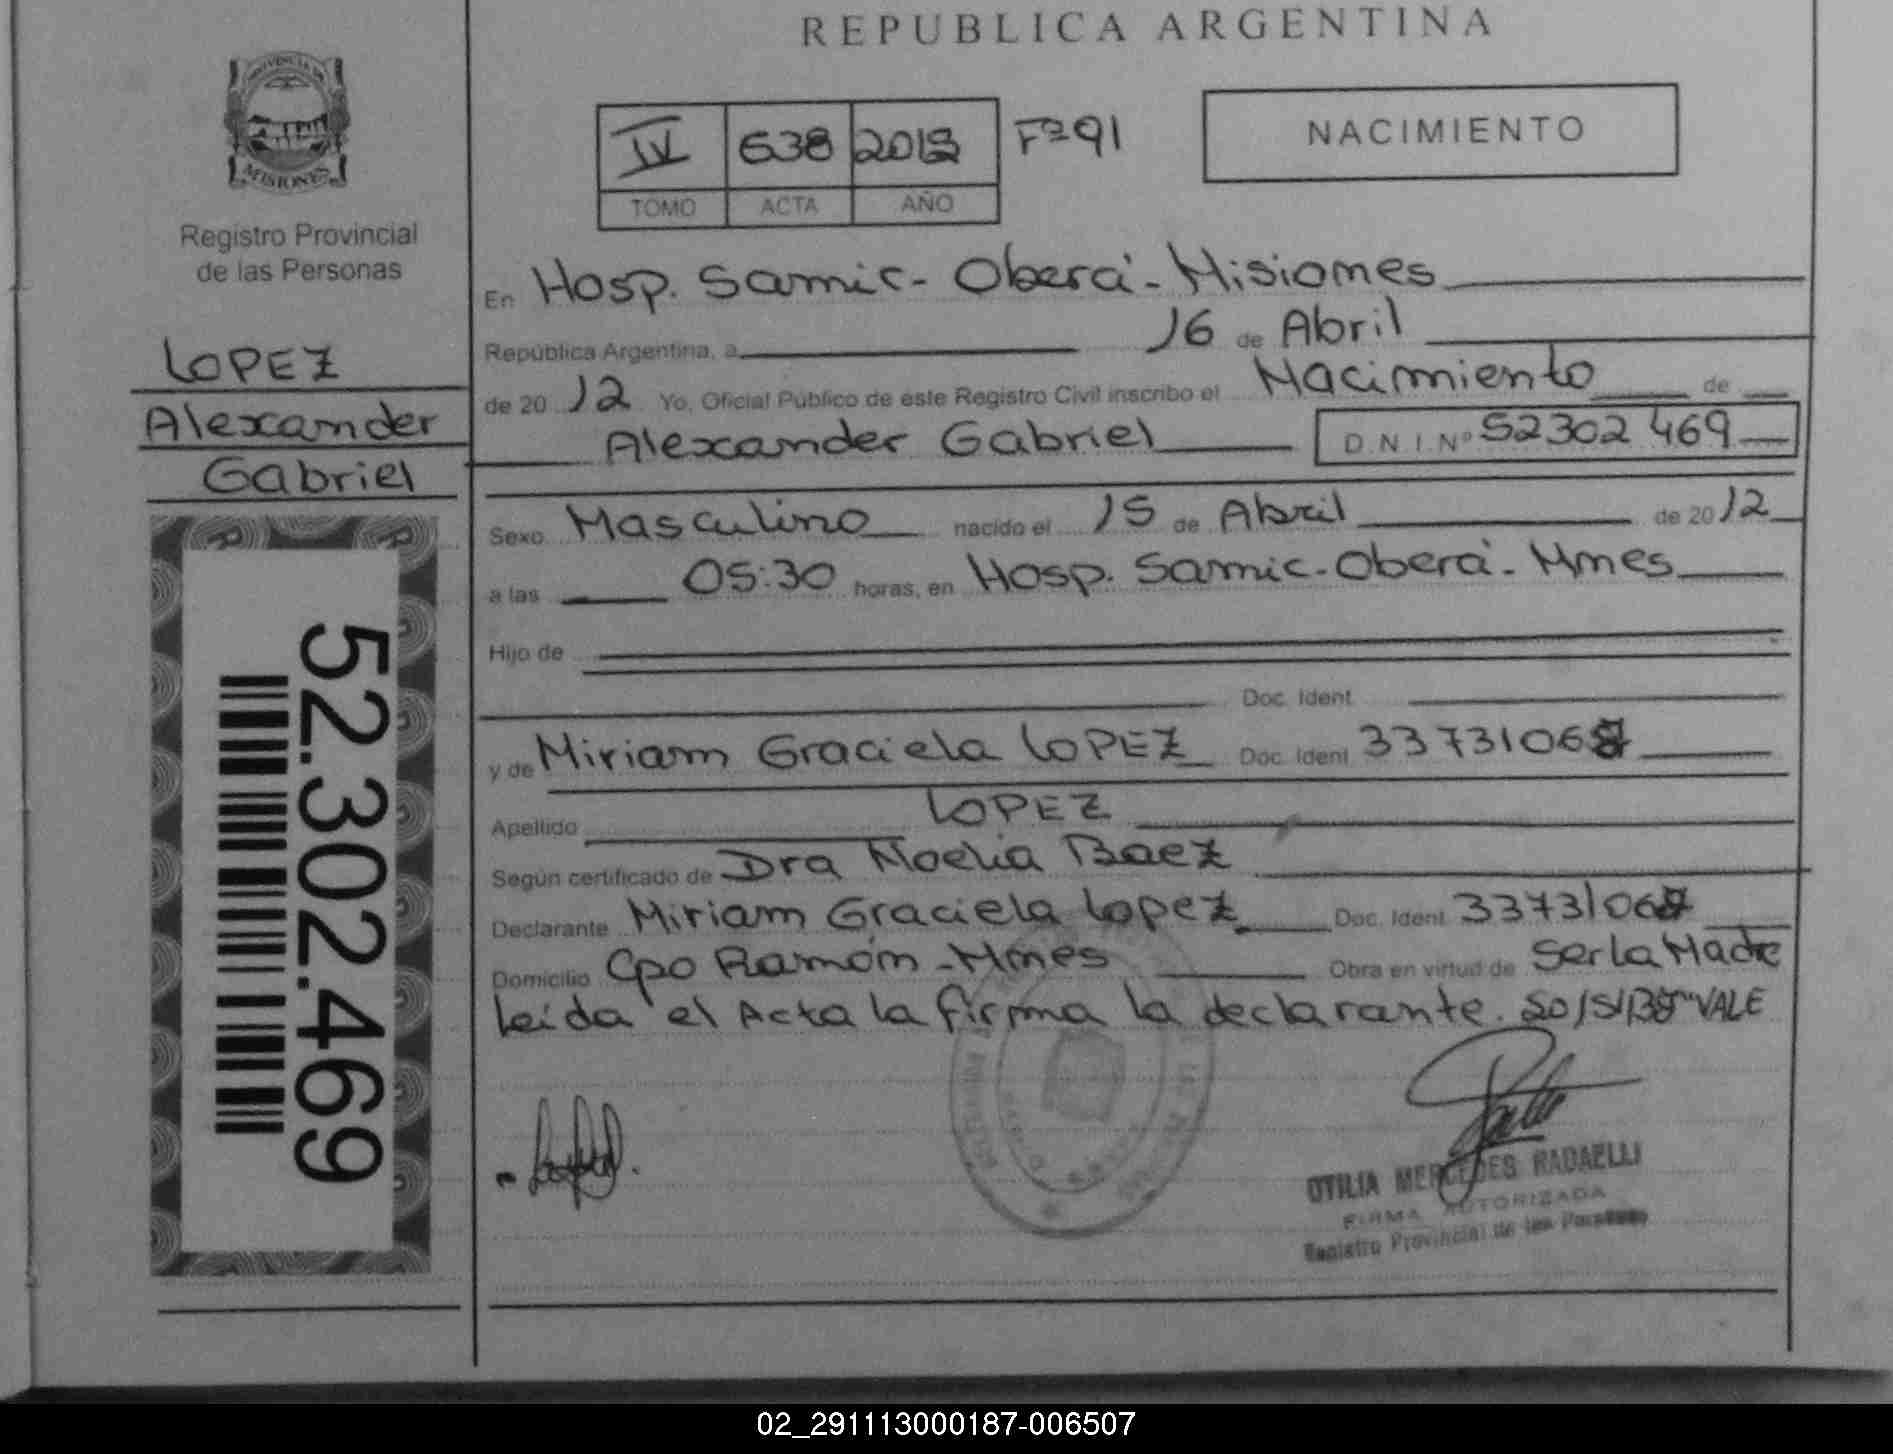 REPUBLICA ARGENTINA
PROVINCIA DE
MISIONES
Registro Provincial
de las Personas
IV 638 F° 91
TOMO ACTA AÑO
NACIMIENTO
LOPEZ
Alexander
Gabriel
52.302.469
En Hosp. Samic - Oberá - Misiones
República Argentina, a 16 de Abril
de 2012 Yo, Oficial Público de este Registro Civil inscribo el Nacimiento de
Alexander Gabriel D.N.I. Nº 52302469
Sexo Masculino nacido el 15 de Abril de 2012
a las 05:30 horas, en Hosp. Samic - Oberá - Mnes
Hijo de
Doc. Ident.
y de Miriam Graciela LOPEZ Doc. Ident.
Apellido LOPEZ
Según certificado de Dra Noelia Baez
Declarante Miriam Graciela Lopez Doc. Ident.
Domicilio Cpo Ramón - Mnes Obra en virtud de Ser la Madre
Leida el Acta la firma la declarante. VALE
OTILIA MERCEDES RADAELLI
FIRMA AUTORIZADA
Registro Provincial de las Personas
02_291113000187-006507